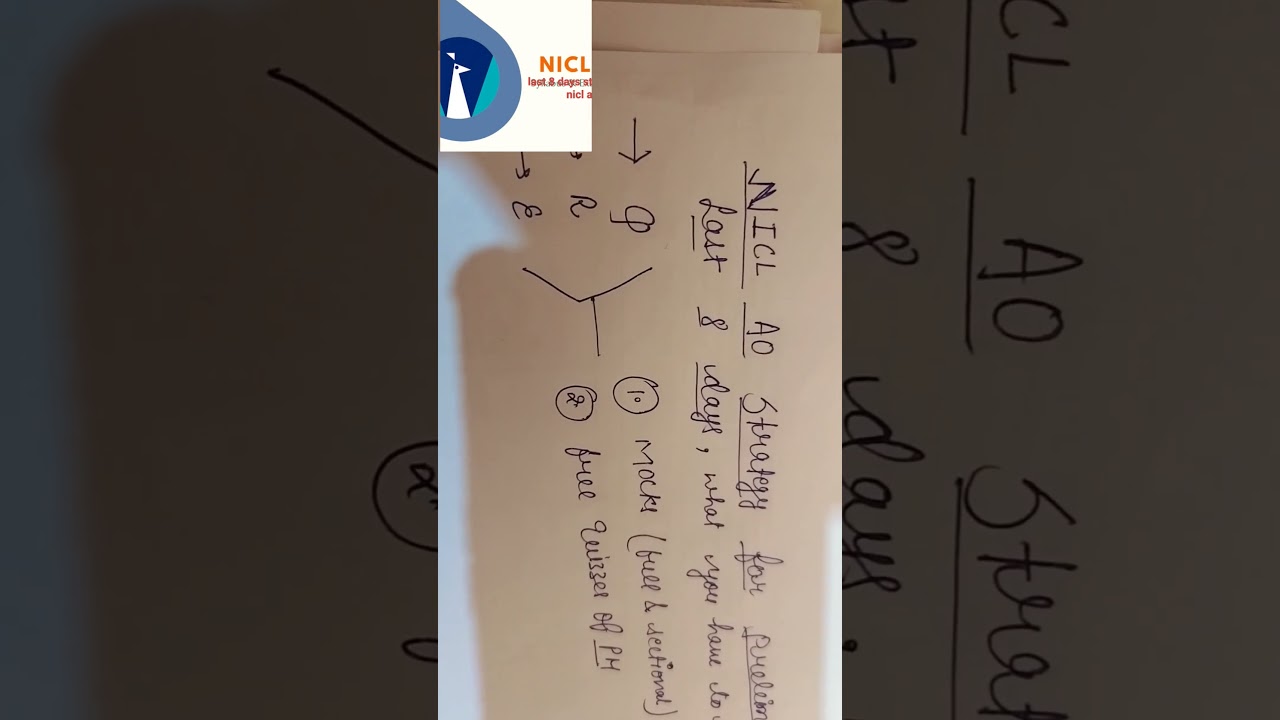 NICL
last 8 days st
nicl a
NICL AO Strategy for Prelim
Last 8 days, what you have to
→ Q
→ R
→ E
1. Mocks (full & sectional)
2. free quizzes of PM